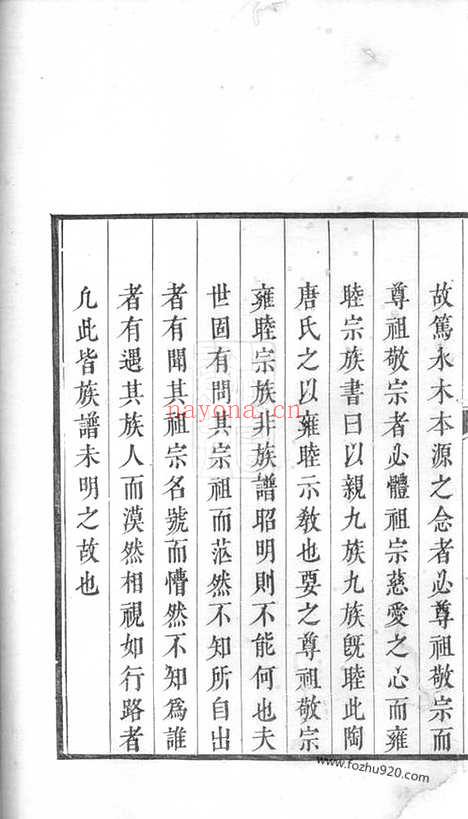 故篤水木本源之念者必尊祖敬宗而
尊祖敬宗者必體祖宗慈愛之心而雍
睦宗族書曰以親九族九族既睦此陶
唐氏之以雍睦示教也要之尊祖敬宗
雍睦宗族非族譜昭明則不能何也夫
世固有問其宗祖而茫然不知所自出
者有聞其祖宗名號而懵然不知為誰
者有遇其族人而漠然相視如行路者
凡此皆族譜未明之故也
nayona.cn
www.fozhu920.com